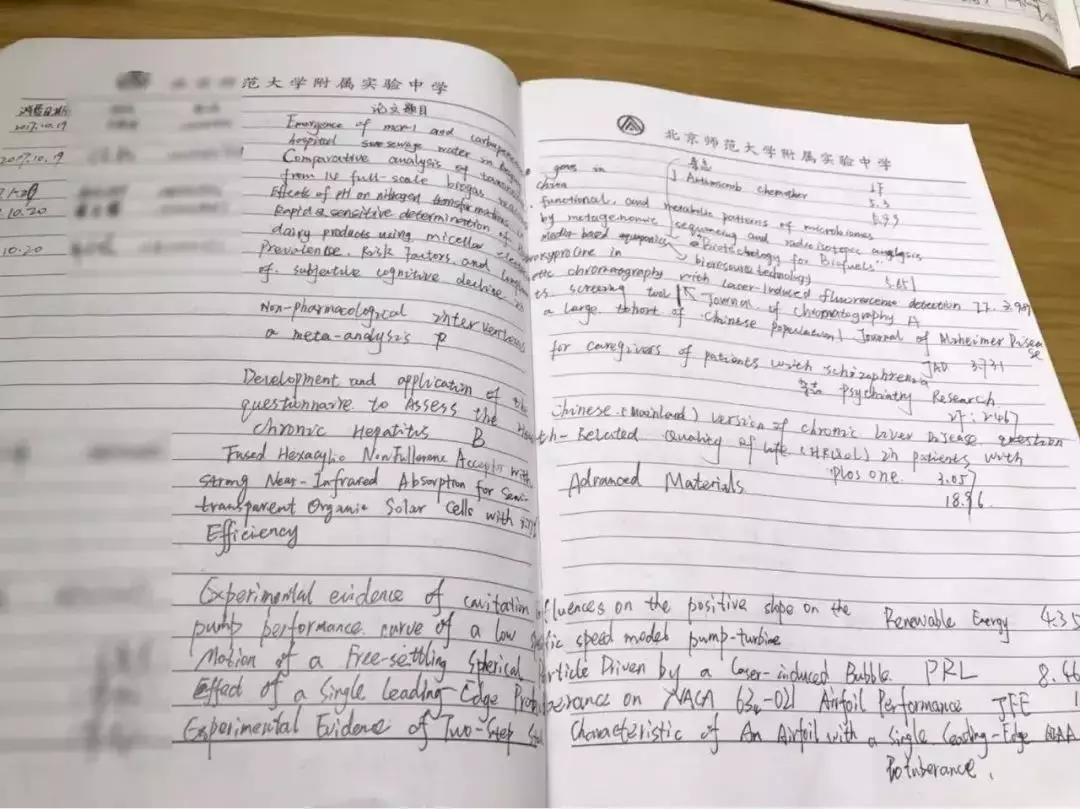 范大学附属实验中学
消费日期
论文题目
2017.10.19
Emergence of mcr-1 and
2017.10.19
hospital sewage water in
Comparative analysis of
from 14 full-scale biogas
Effects of pH on nitrogen transformations in
10.20
Rapid & sensitive determination of
dairy products using micellar
10.20
Prevalence, Risk factors, and
of subjective cognitive decline in
Non-pharmacological interventions
a meta-analysis P
Development and application of the
questionnaire to Assess the Health-Related Quality of life (HRQoL) in patients with
chronic Hepatitis B
Fused Hexacyclic Nonfullerene Acceptor with
strong Near-Infrared Absorption for Semi-
transparent Organic Solar Cells with
Efficiency
Experimental evidence of cavitation influences on the positive slope on the
pump performance curve of a low speed model pump-turbine
Motion of a Free-settling Spherical Particle Driven by a Laser-induced Bubble. PRL 8.46
Effect of a Single Leading-Edge Protuberance on NACA 634-021 Airfoil Performance JFE 1
Experimental Evidence of Two-Step
北京师范大学附属实验中学
genes in
杂志
IF
China
J Antimicrob chemother
5.3
functional, and metabolic patterns of microbiomes
by metagenomic sequencing and radioisotopic analysis
media-based aquaponics
"Biotechnology for Biofuels"
bioresource technology
5.651
chromatography with laser-induced fluorescence detection
screening tool
Journal of chromatography A
a large cohort of Chinese population Journal of Alzheimer Disease
JAD 3.731
for caregivers of patients with schizophrenia
杂志 Psychiatry Research
IF: 2.467
Chinese (Mainland) version of chronic liver Disease question
Plos one. 3.057
Advanced Materials
18.96
Renewable Energy 4.35
Characteristic of An Airfoil with a Single Leading-Edge
Protuberance.